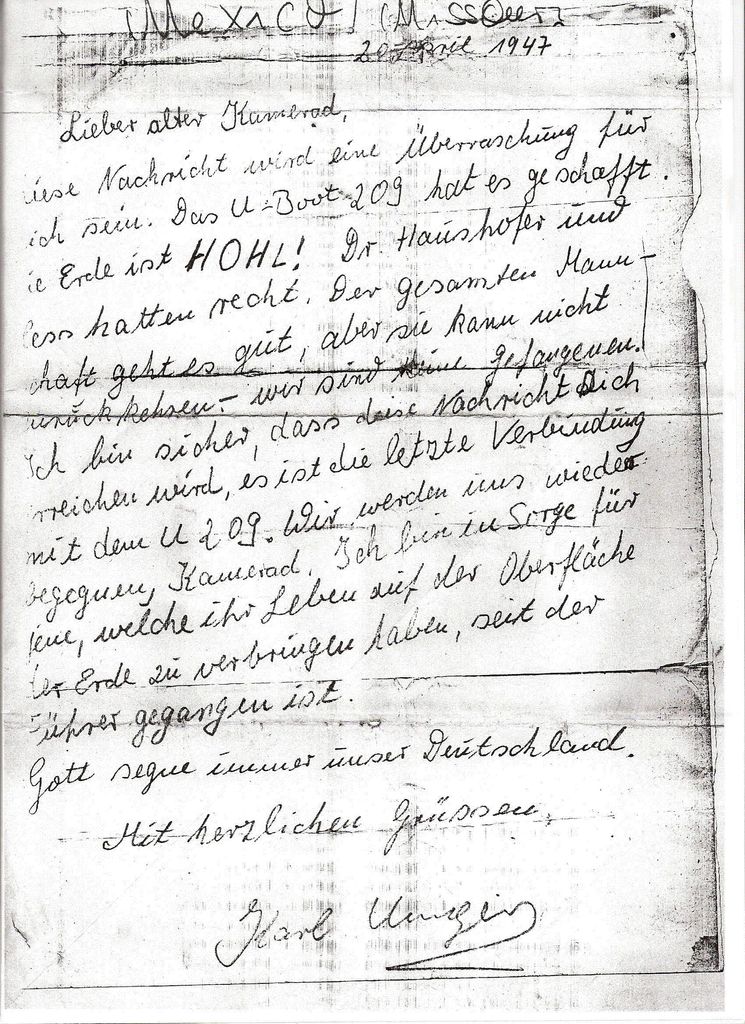 Mexico / (Missouri)
20 April 1947
Lieber alter Kamerad,
iese Nachricht wird eine Überraschung für
ich sein. Das U-Boot 209 hat es geschafft.
ie Erde ist HOHL! Dr. Haushofer und
ess hatten recht. Der gesamten Mann-
chaft geht es gut, aber sie kann nicht
urückkehren. - wir sind keine Gefangenen.
Ich bin sicher, dass diese Nachricht Dich
rreichen wird, es ist die letzte Verbindung
mit dem U 209. Wir werden uns wieder
begegnen, Kamerad. Ich bin in Sorge für
jene, welche ihr Leben auf der Oberfläche
der Erde zu verbringen haben, seit der
Führer gegangen ist.
Gott segne immer unser Deutschland.
Mit herzlichen Grüssen,
Karl Unger